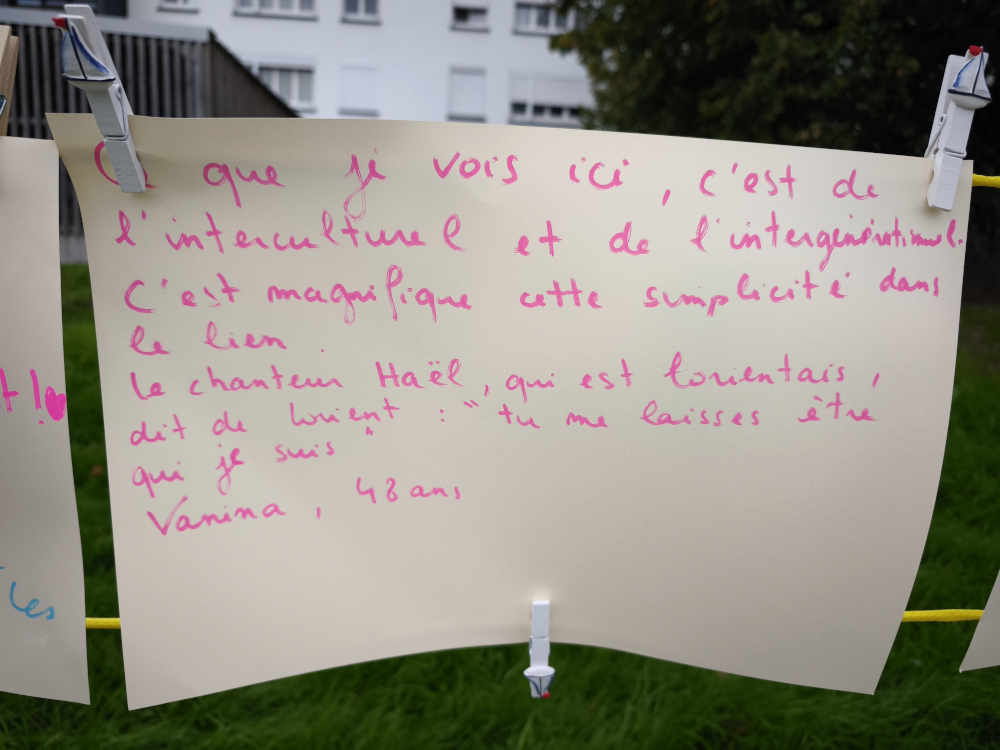 Ce que je vois ici, c'est de
l'interculturel et de l'intergénérationnel.
C'est magnifique cette simplicité dans
le lien.
Le chanteur Haël, qui est lorientais,
dit de Lorient : "tu me laisses être
qui je suis"
Vanina, 48 ans
t !
les